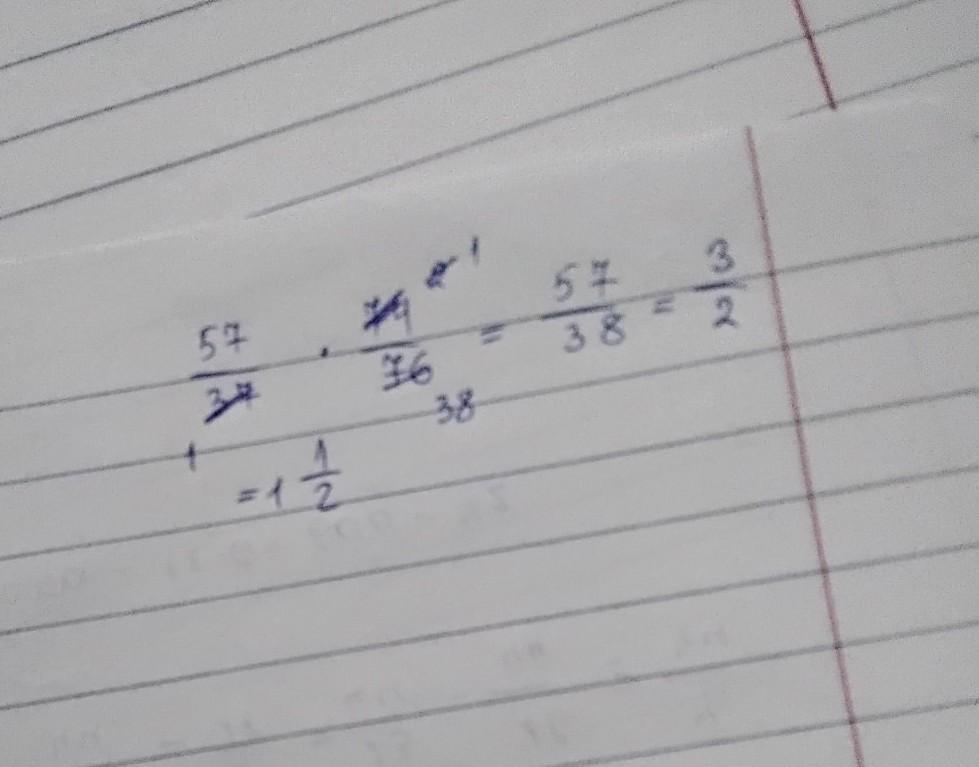 57/37 · 74/76 = 57/38 = 3/2
1 2 1 38
= 1 1/2